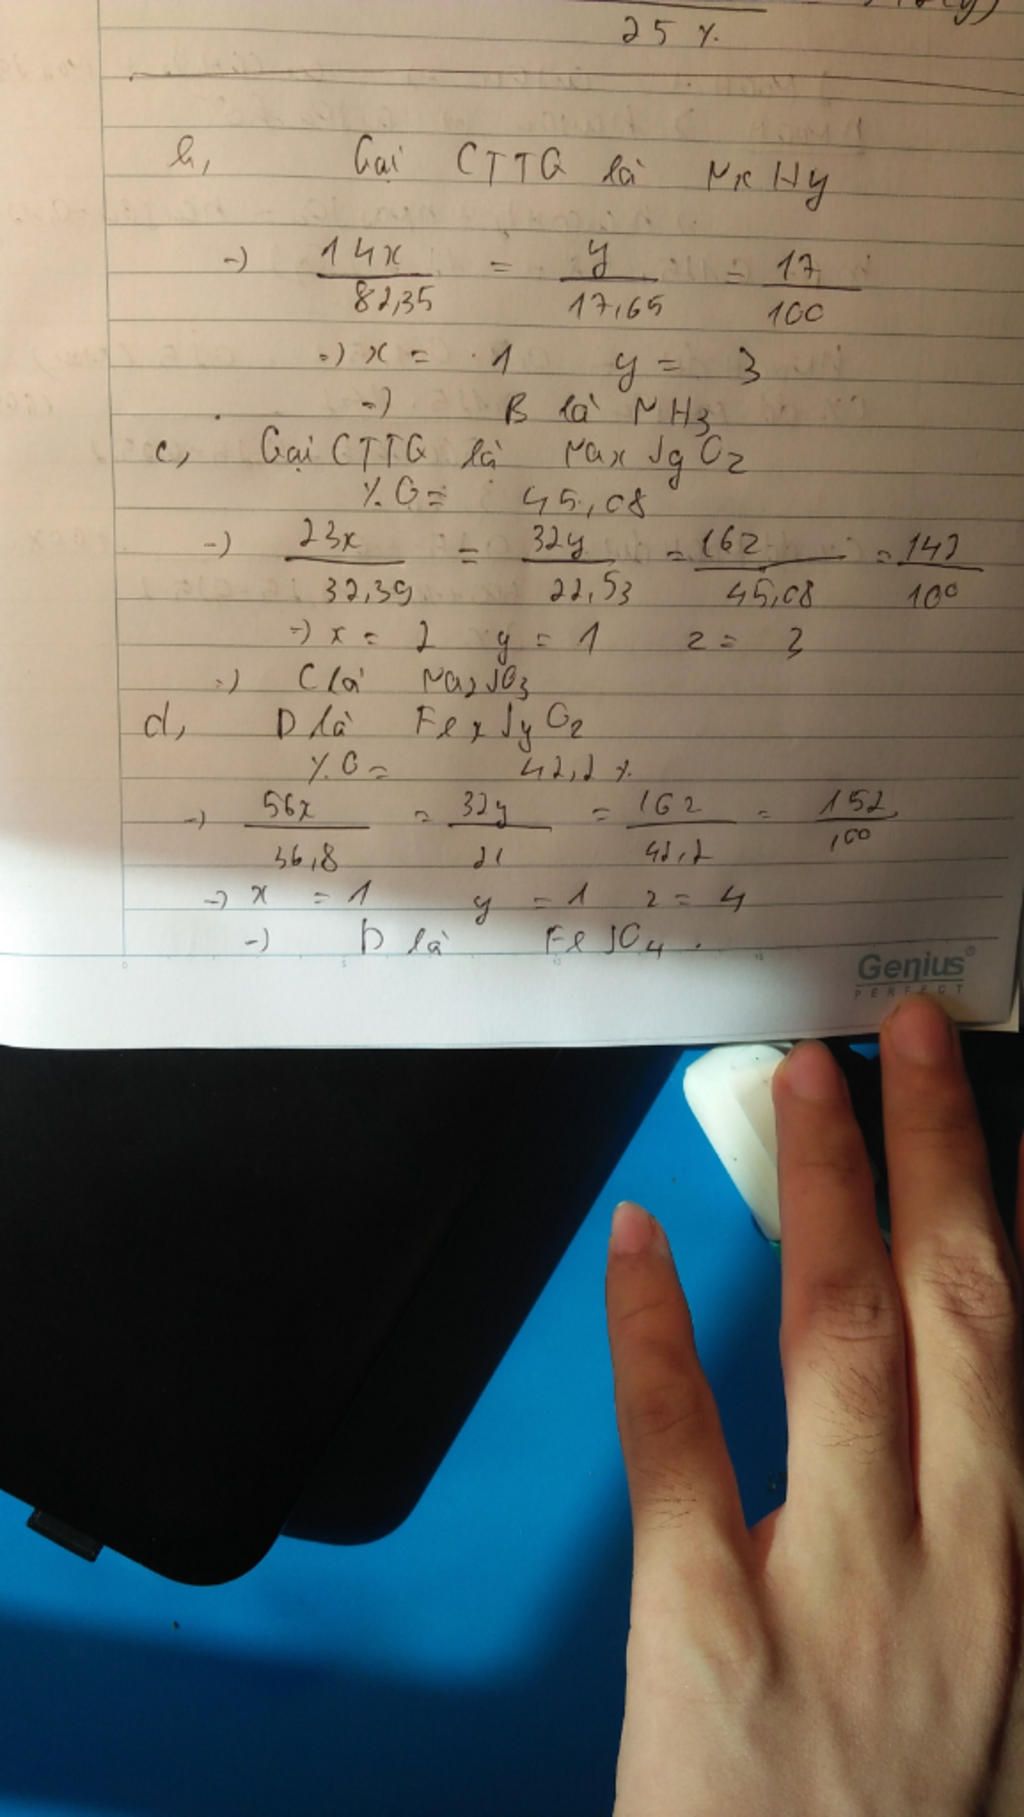 25 %
b, Gọi CTTQ là NxHy
-) 14x/82,35 = y/17,65 = 17/100
=) x = 1 y = 3
=) B là NH3
c, Gọi CTTQ là NaxSyOz
%O = 45,08
-) 23x/32,39 = 32y/22,53 = 16z/45,08 = 142/100
=) x = 2 y = 1 z = 3
=) C là Na2SO3
d, D là FexSyOz
%O = 42,2 %
-) 56x/36,8 = 32y/21 = 16z/42,2 = 152/100
-) x = 1 y = 1 z = 4
-) D là FeSO4.
Genius®
PERFECT